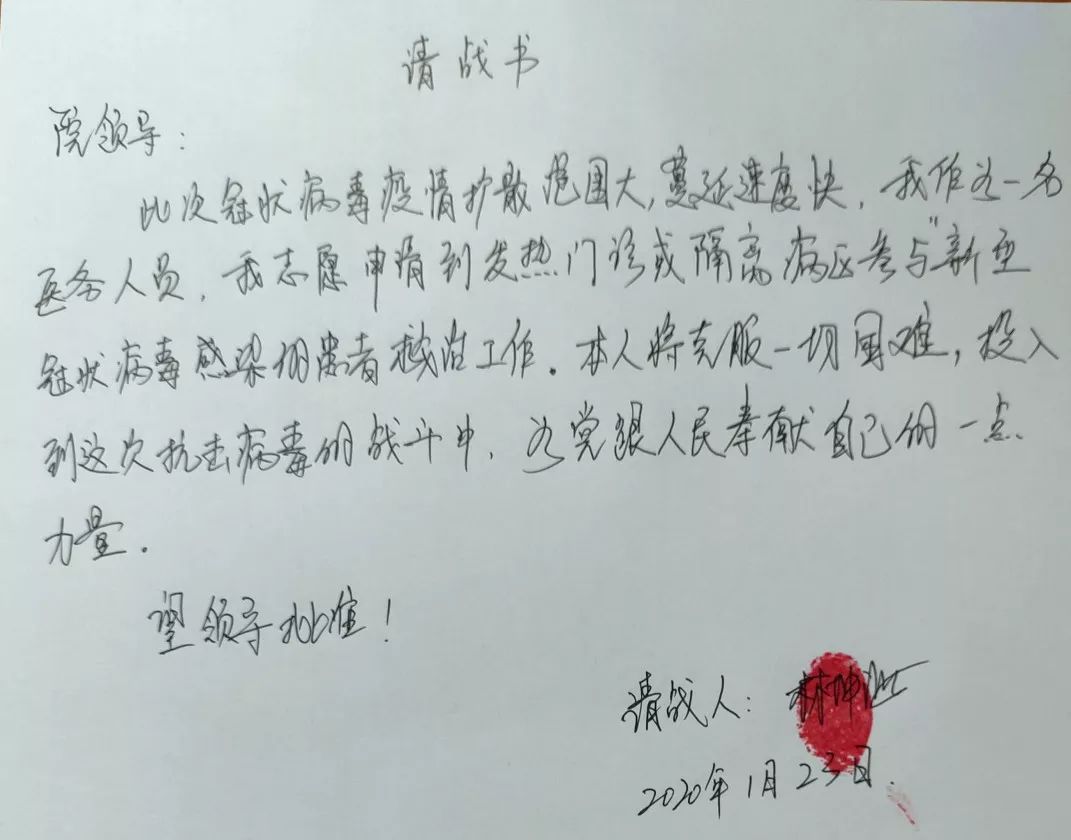 请战书
院领导：
此次冠状病毒疫情扩散范围大，蔓延速度快，我作为一名
医务人员，我志愿申请到发热门诊或隔离病区参与"新型
冠状病毒感染的患者救治工作。本人将克服一切困难，投入
到这次抗击病毒的战斗中，为党跟人民奉献自己的一点
力量。
望领导批准！
请战人：林坤
2020年1月23日.